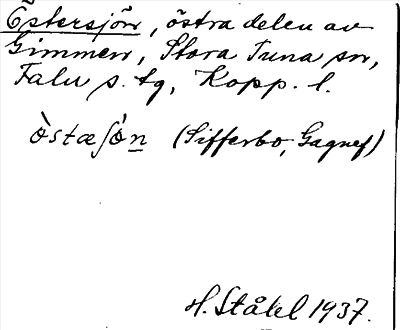 Östersjön, östra delen av
Gimmen, Stora Tuna sn,
Falu s. tg, Kopp. l.
ò̀stæʃò̀n (Sifferbo, Gagnef)
H. Ståhl 1937.